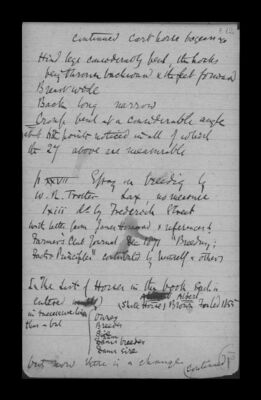 continued cart horse
Hind legs considerably bent, the hocks
being thrown backward & the feet forward
Breast wide
Back long narrow
Croup bent at a considerable angle
points noticed in all of which
the 27 above are measurable
p XXVII Essay on breeding by
W. R. Trotter has no measure
lxiii do by Frederick Street
with letter from James Howard & reference to
Farmers Club Journal Dec 1878 "Breeding;
Facts & Principles" contributed by himself & others
In the List of Horses in the book Each is
entire
Albert
(Shire Horse) Brown Foaled 1855
in
thus a bal
Owner
Breeder
Sire
Dam
Dams breeder
Dams sire
but now there is a change
(continued)